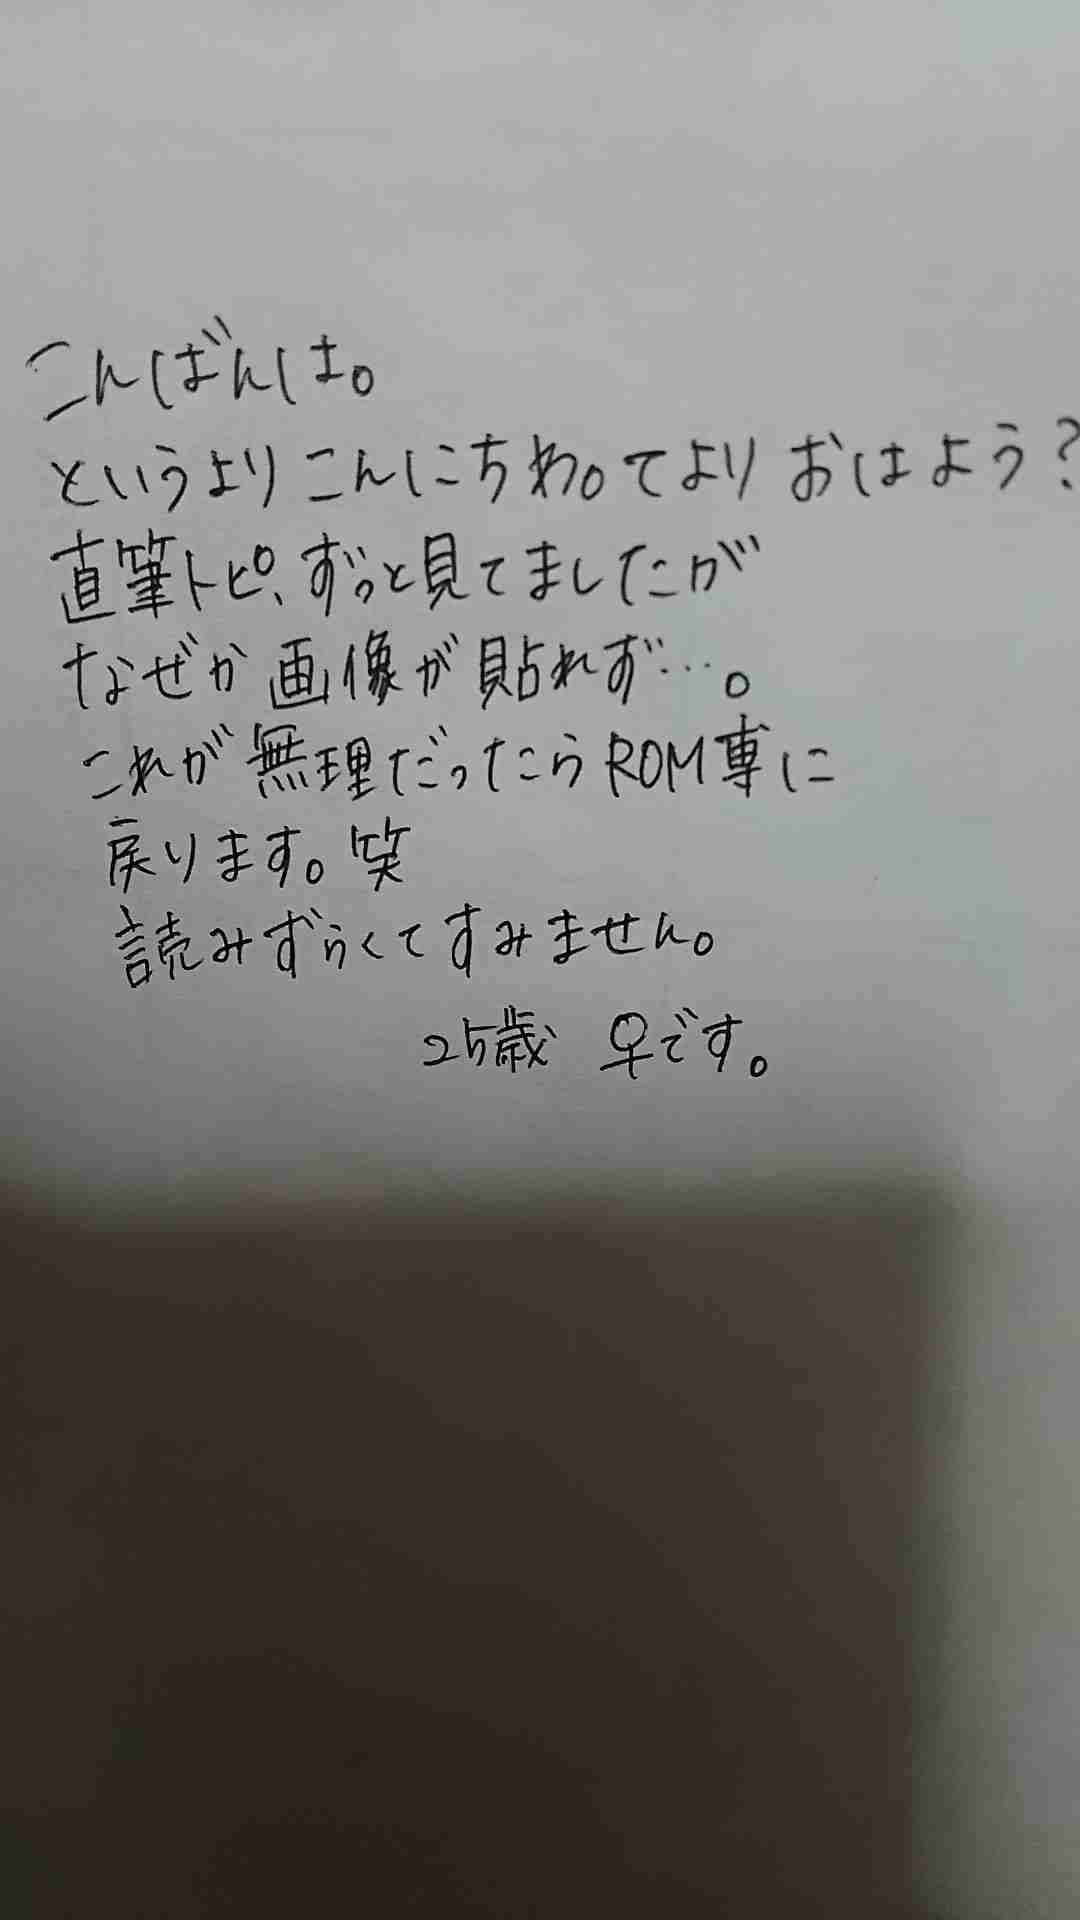 こんばんは。
というよりこんにちわ。てより おはよう?
直筆トピ、ずっと見てましたが
なぜか画像が貼れず…。
これが無理だったらROM専に
戻ります。笑
読みずらくてすみません。
25歳 ♀です。